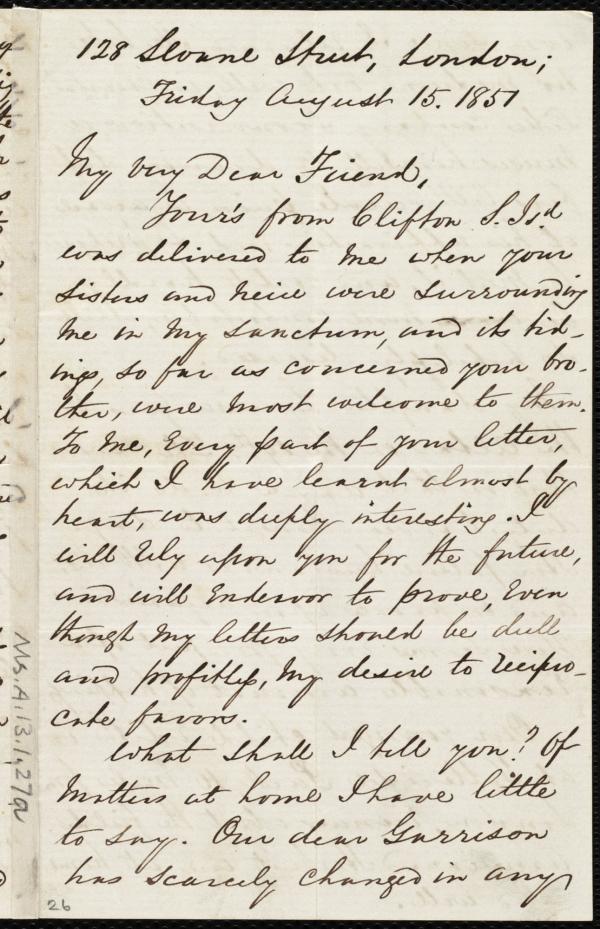 128 Sloane Street, London;
Friday August 15. 1851
My very Dear Friend,
Your's from Clifton S. Isd
was delivered to me when your
sisters and neice were surrounding
me in my sanctum, and its tid-
ings, so far as concerned your bro-
ther, were most welcome to them.
To me, every part of your letter,
which I have learnt almost by
heart, was deeply interesting. I
will rely upon you for the future,
and will endeavor to prove, even
though my letters should be dull
and profitless, my desire to recipro-
cate favors.
What shall I tell you? Of
matters at home I have little
to say. Our dear Garrison
has scarcely changed in any
Ms. A.1.3.1, 27a
26